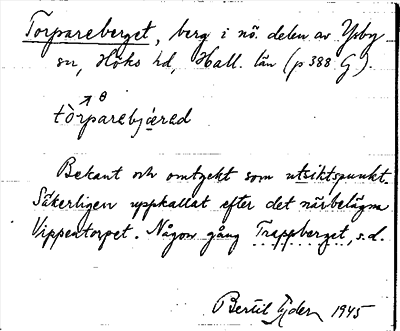 Torpareberget, berg i nö. delen av Ysby
sn, Höks hd, Hall. län (p 388 G).
tòrparebjæred
Bekant och omtyckt som utsiktspunkt.
Säkerligen uppkallat efter det närbelägna
Vippentorpet. Någon gång Trappberget, s.d.
Bertil Ejder 1945